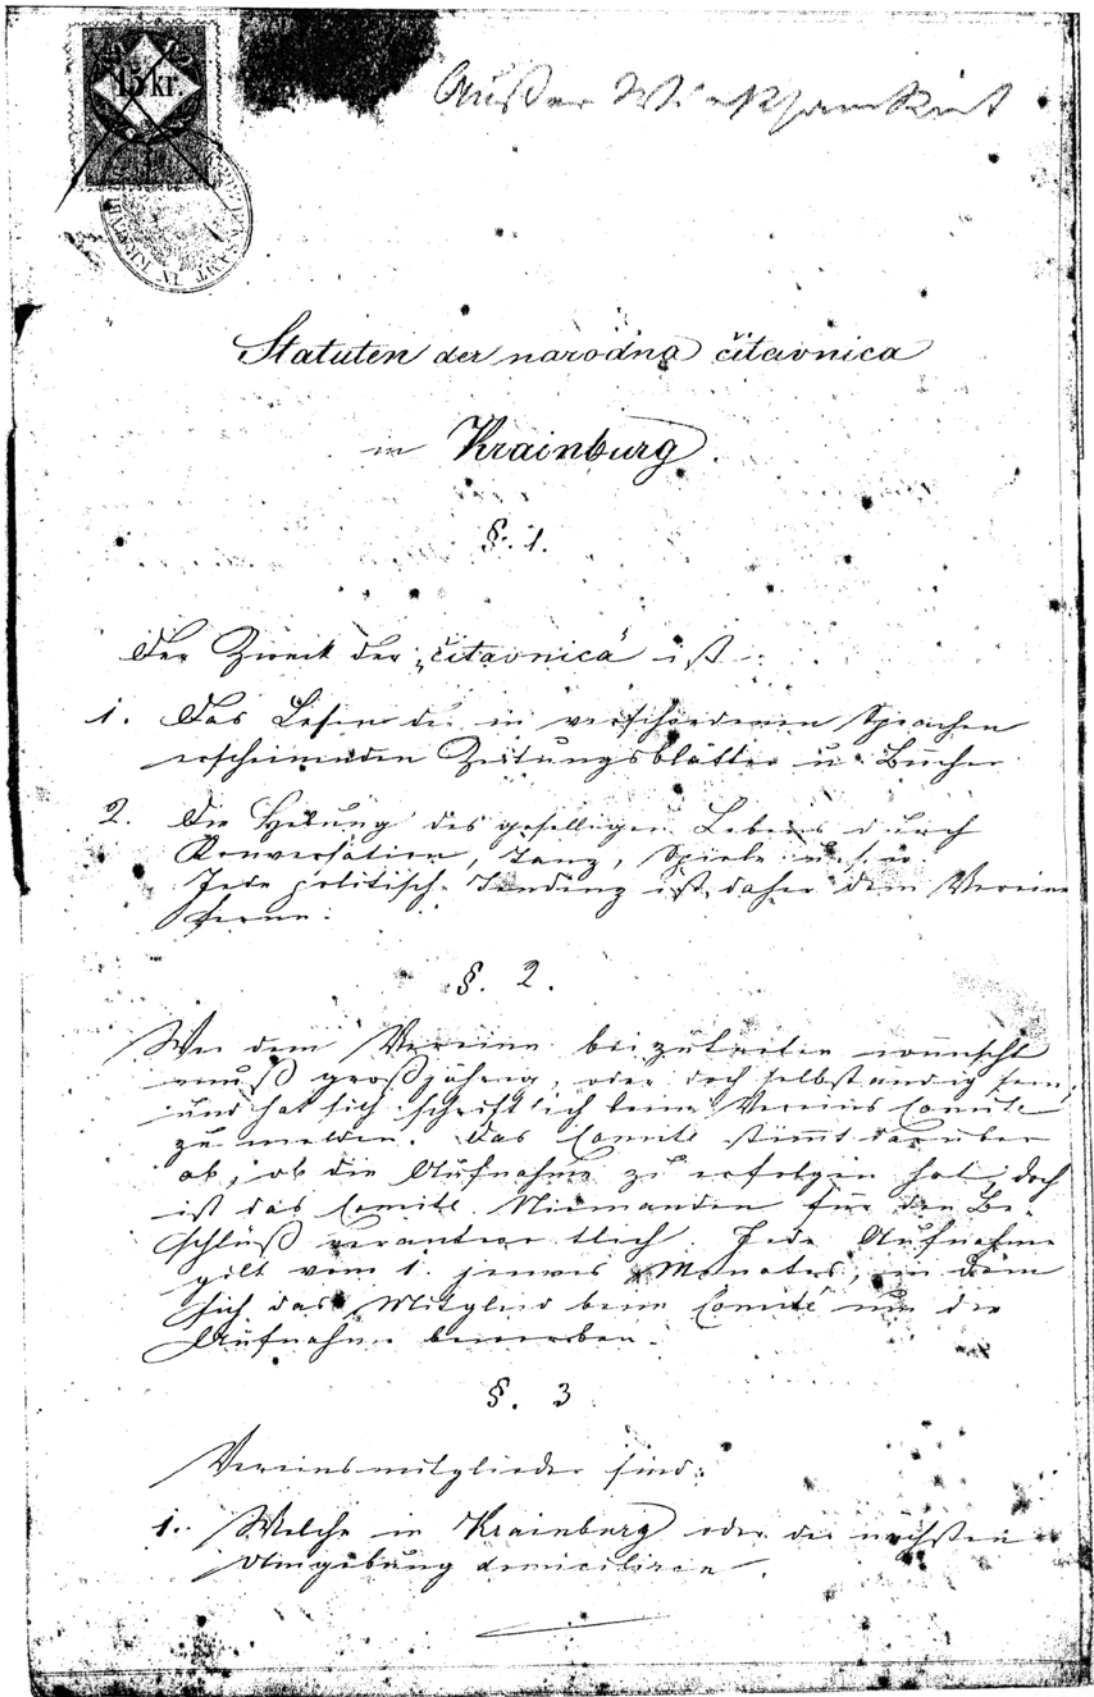 15 kr.
Außer Wirksamkeit
Statuten der narodna čitavnica
in Krainburg.
§. 1.
Der Zweck der „čitavnica“ ist:
1. Das Lesen der in verschiedenen Sprachen
erscheinenden Zeitungsblätter u. Bücher
2. Die Hebung des geselligen Lebens durch
Konversation, Tanz, Spiele u. s. w.
Jede politische Tendenz ist daher dem Vereine
ferne.
§. 2.
Wer dem Vereine beizutreten wünscht
muß großjährig, oder doch selbständig sein,
und hat sich schriftlich beim Vereins Comité
zu melden. Das Comité stimmt darüber
ab, ob die Aufnahme zu erfolgen hat, doch
ist das Comité Niemanden für den Be-
schluß verantwortlich. Jede Aufnahme
gilt vom 1. jenes Monates, in dem
sich das Mitglied beim Comité um die
Aufnahme beworben.
§. 3
Vereinsmitglieder sind:
1. Welche in Krainburg oder der nächsten
Umgebung domiciliren.